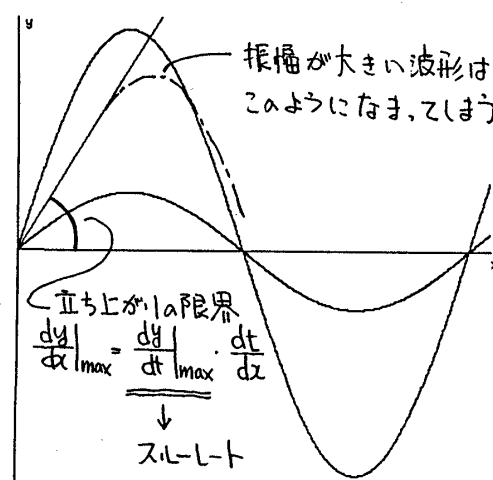 y
振幅が大きい波形は
このようになまってしまう
x
立ち上がりの限界
dy/dx|max = dy/dt|max · dt/dx
↓
スルーレート